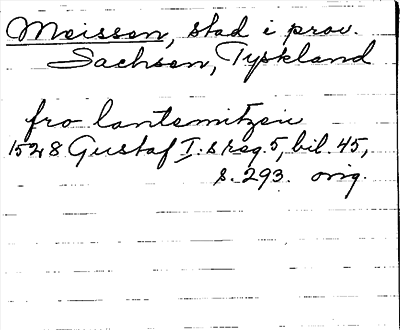 Meissen, stad i prov.
Sachsen, Tyskland
fro lantsmitzen
1528 Gustaf I:s reg. 5, bil. 45,
s. 293. orig.